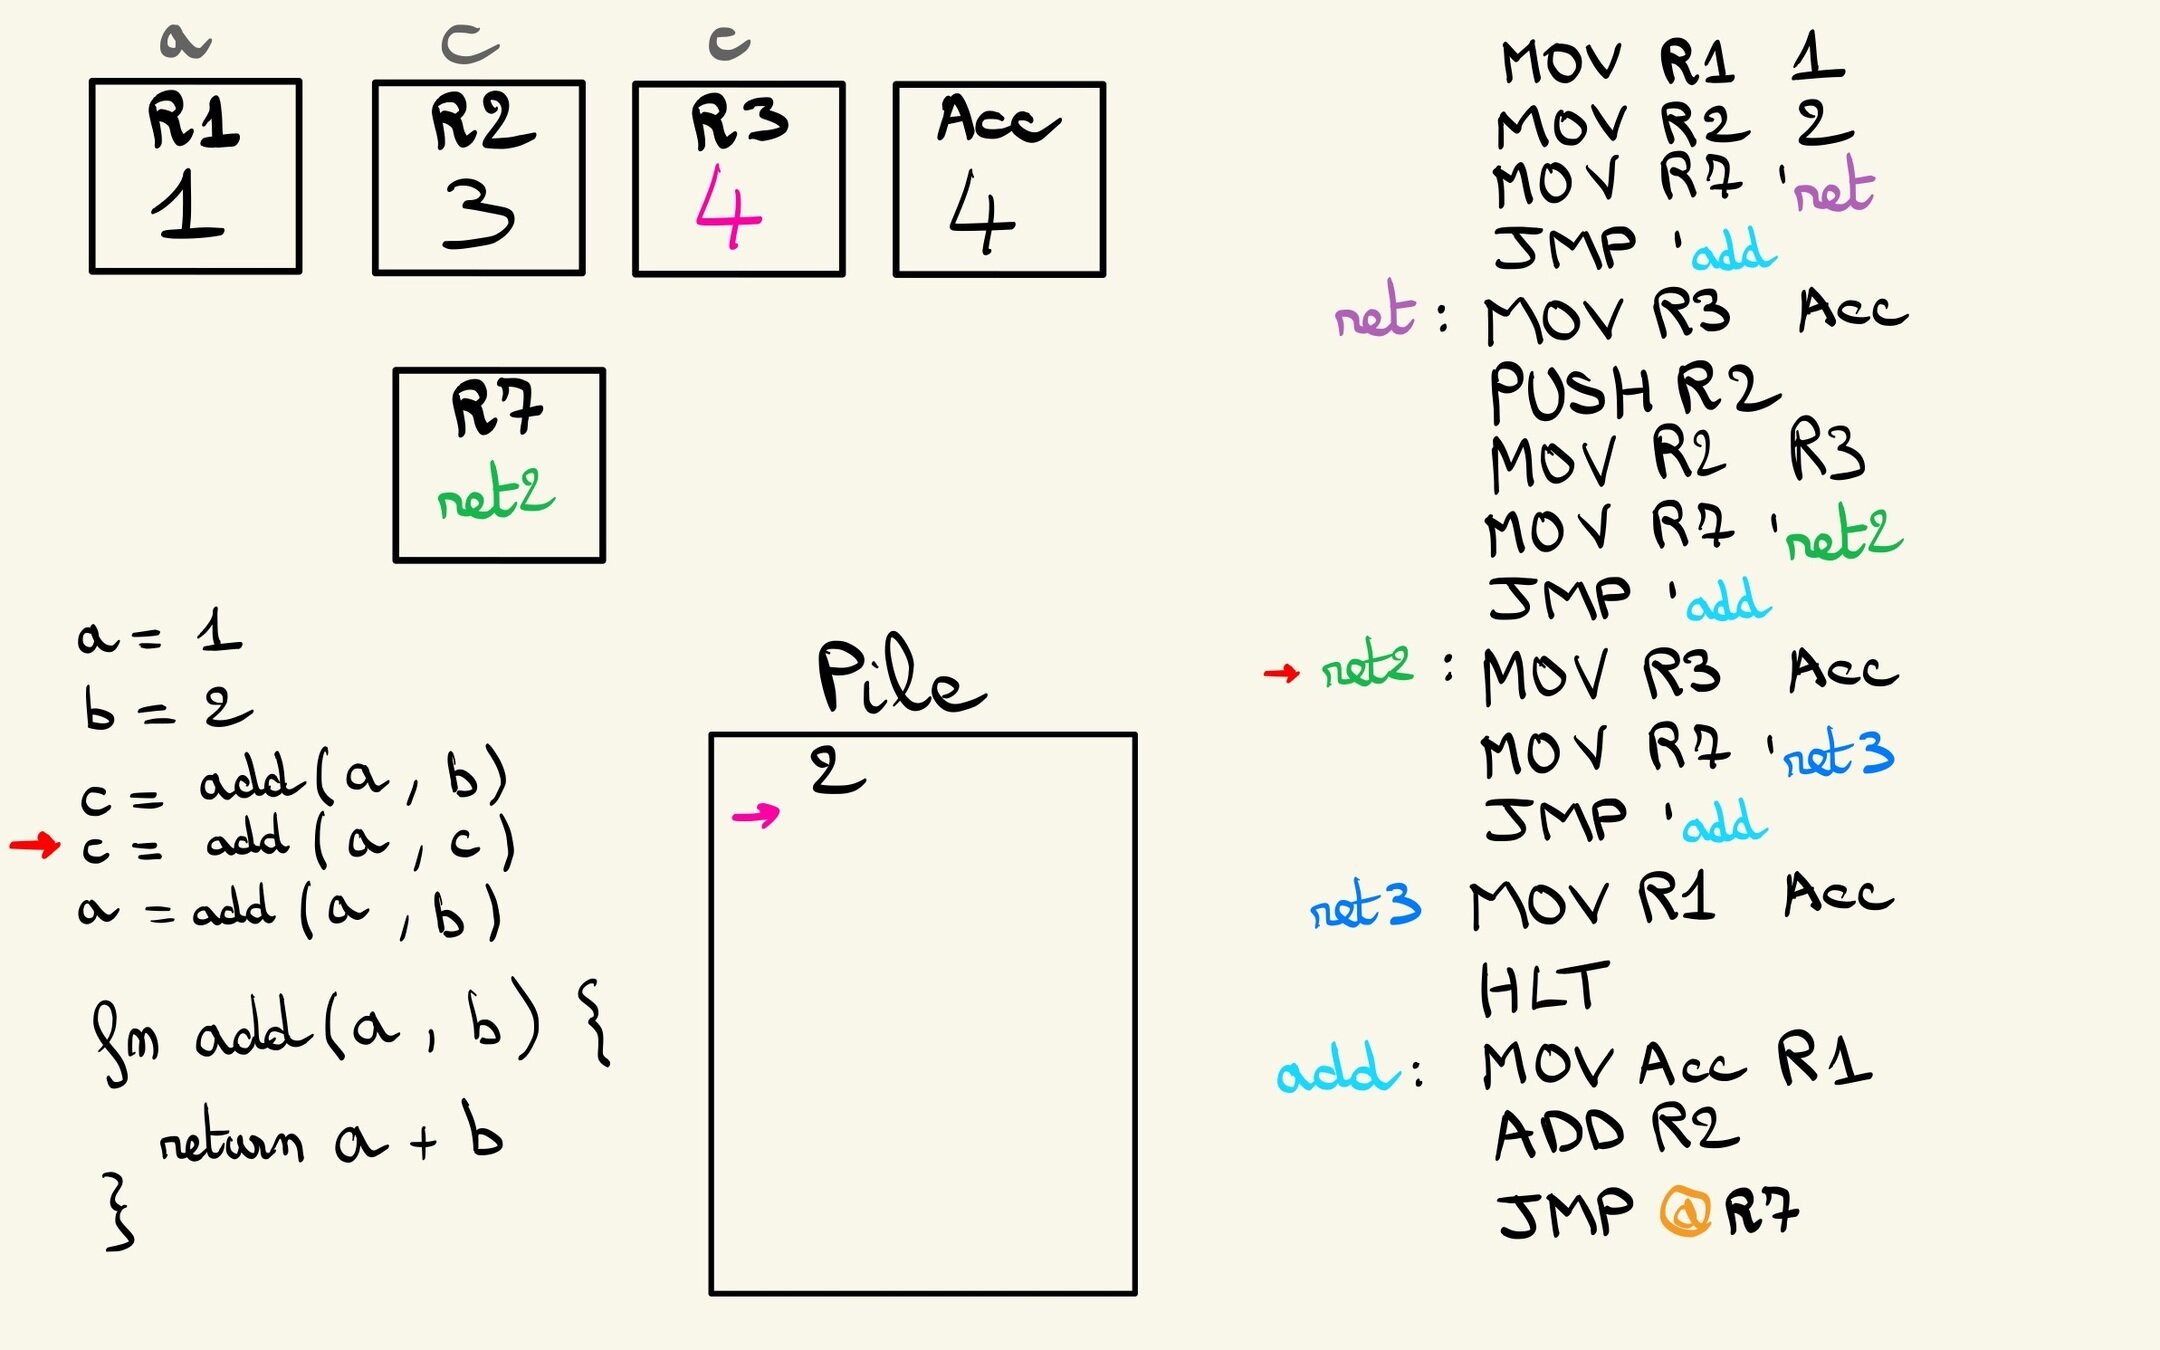 a c c
R1 R2 R3 Acc
1 3 4 4
R7
ret2
a = 1
b = 2
c = add(a, b)
→ c = add(a, c)
a = add(a, b)
fn add(a, b) {
return a + b
}
Pile
2
→
MOV R1 1
MOV R2 2
MOV R7 'ret
JMP 'add
ret : MOV R3 Acc
PUSH R2
MOV R2 R3
MOV R7 'ret2
JMP 'add
→ ret2 : MOV R3 Acc
MOV R7 'ret3
JMP 'add
ret3 MOV R1 Acc
HLT
add : MOV Acc R1
ADD R2
JMP @R7